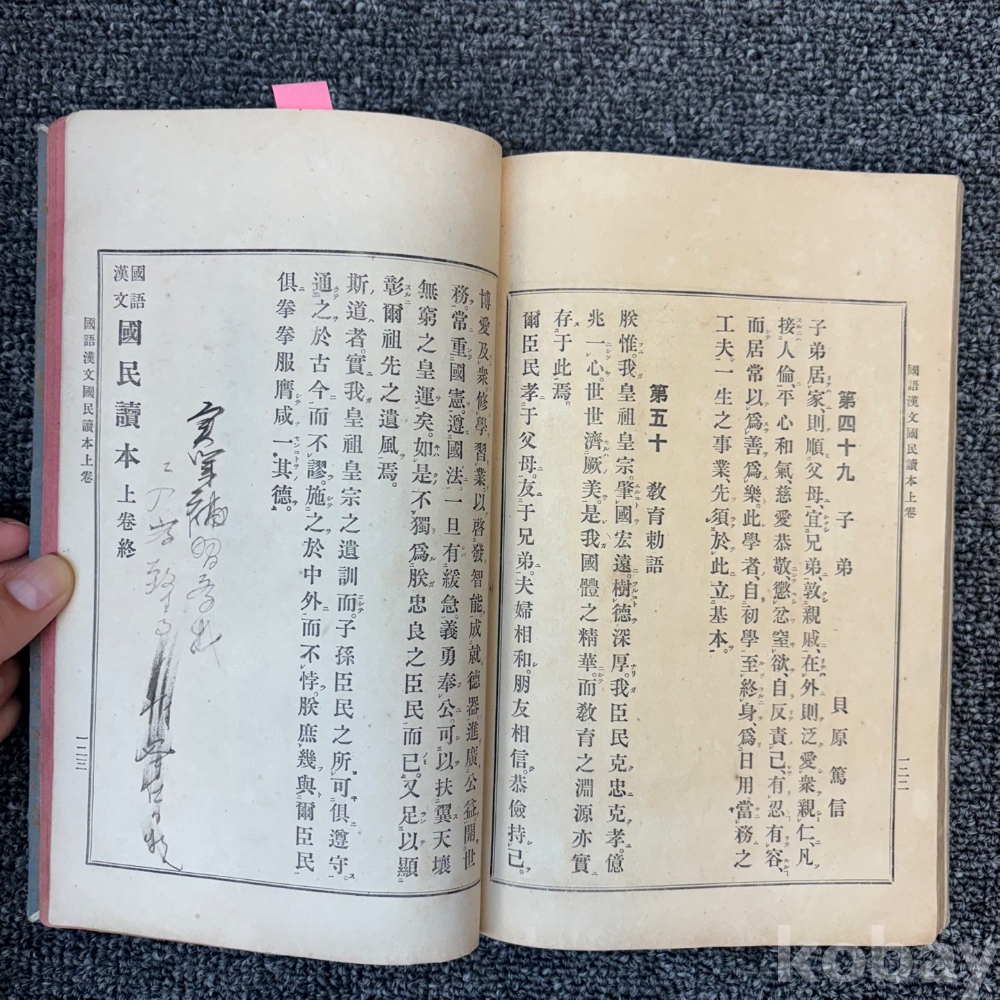 國語漢文國民讀本上卷
一二二
第四十九 子弟 貝原篤信
子弟居家、則順父母、宜兄弟、敦親戚、在外則泛愛衆親仁、凡
接人倫、平心和氣、慈愛恭敬、懲忿窒欲、自反責己、有忍有容、
而居常以爲善爲樂。此學者、自初學至終身、爲日用當務之
工夫。一生之事業、先須於此立基本。
第五十 敎育勅語
朕惟。我皇祖皇宗。肇國宏遠。樹德深厚。我臣民克忠克孝。億
兆一心。世世濟厥美。是我國體之精華。而敎育之淵源亦實
存于此焉。
爾臣民孝于父母。友于兄弟。夫婦相和。朋友相信。恭儉持己。
博愛及衆。修學習業、以啓發智能、成就德器、進廣公益、開世
務。常重國憲。遵國法。一旦有緩急。義勇奉公。可以扶翼天壤
無窮之皇運矣。如是、不獨爲朕忠良之臣民而已。又足以顯
彰爾祖先之遺風焉。
斯道者、實我皇祖皇宗之遺訓。而子孫臣民之所可俱遵守。
通之於古今而不謬。施之於中外而不悖。朕庶幾與爾臣民
俱拳拳服膺咸一其德。
國語漢文 國民讀本上卷終
國語漢文國民讀本上卷
一二三
kobay